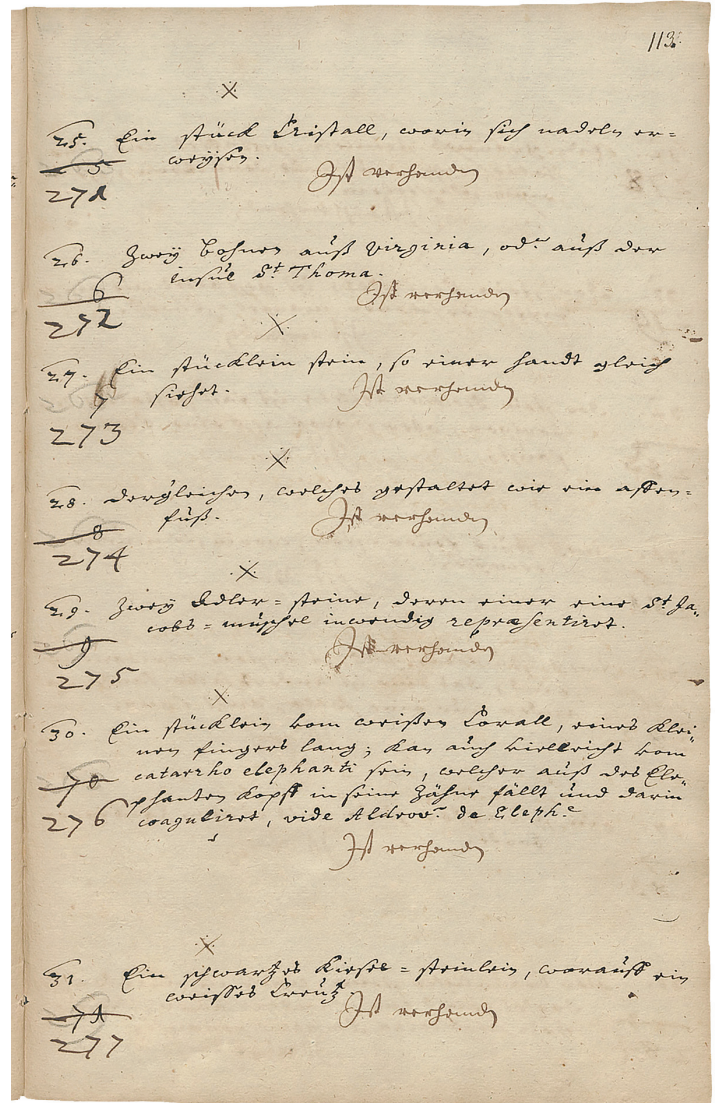 113.
X
25. Ein stück Cristall, worin sich nadeln er=
5 weysen.
Ist verhanden
271
26. Zwey bohnen auß Virginia, od.r auß der
insul St Thoma.
6 Ist verhanden
272
X
27. Ein stücklein stein, so einer handt gleich
7 siehet. Ist verhanden
273
X
28. dergleichen, welches gestaltet wie ein affen=
fuß. Ist verhanden
8
274
X
29. Zwey Adler=steine, deren einer eine St Ja=
cobs=müschel inwendig repræsentiret.
9 Ist verhanden
275
X
30. Ein stücklein vom weißen Corall, eines klei=
nen fingers lang; kan auch vielleicht vom
10 catarrho elephanti sein, welcher auß des Ele=
phanten kopff in seine Zähne fällt und darin
276 coaguliret, vide Aldrov. de Eleph.e
Ist verhanden
X
31. Ein schwartzes Kiesel=steinlein, worauff ein
weisses Creutz.
11 Ist verhanden
277